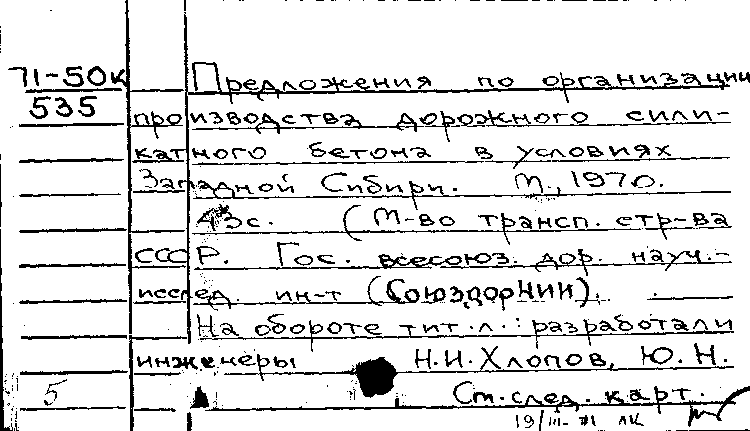 71-50к Предложения по организации
535 производства дорожного сили-
катного бетона в условиях
Западной Сибири. М., 1970.
43с. (М-во трансп. стр-ва
СССР. Гос. всесоюз. дор. науч.-
исслед. ин-т (СоюздорНИИ).
На обороте тит.л.: разработали
инженеры Н.И.Хлопов, Ю.Н.
5 См.след.карт.
19/III-71 ЛК